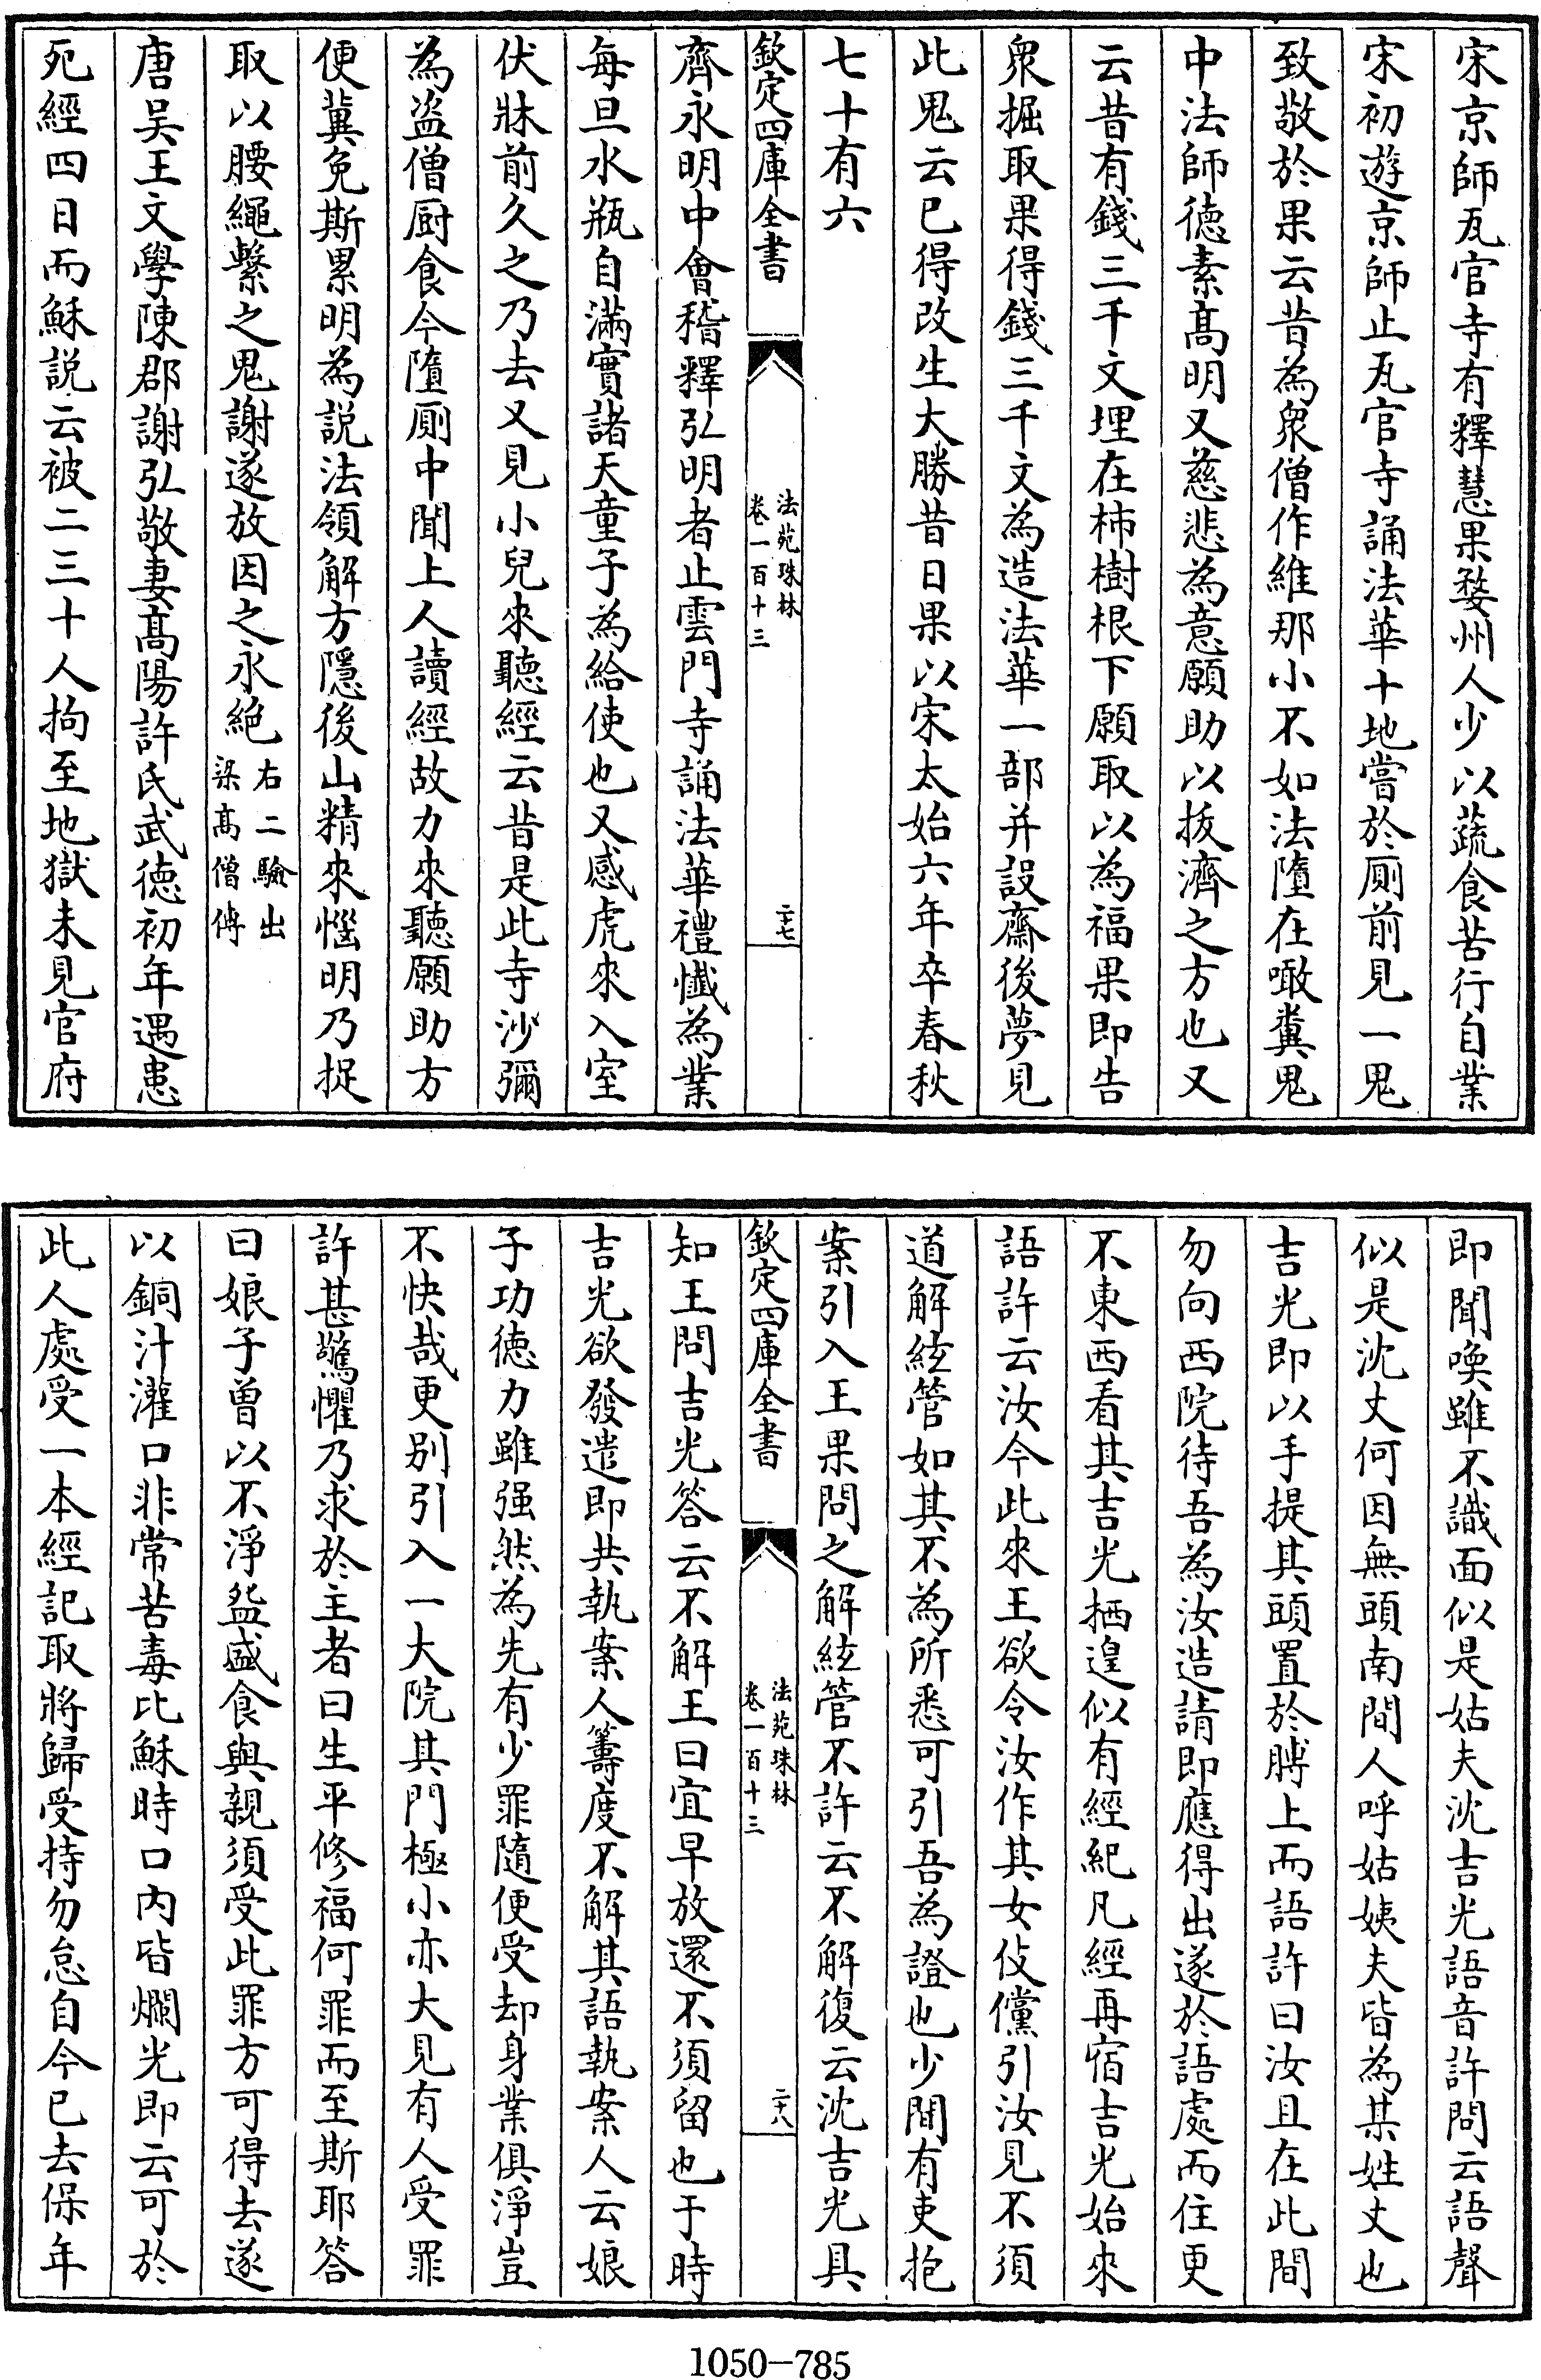 宋京師瓦官寺有釋慧果婺州人少以蔬食苦行自業
宋初遊京師止瓦官寺誦法華十地嘗於厠前見一鬼
致敬於果云昔為衆僧作維那小不如法墮在噉糞鬼
中法師徳素髙明又慈悲為意願助以拔濟之方也又
云昔有錢三千文埋在柿樹根下願取以為福果即告
衆掘取果得錢三千文為造法華一部并設齋後夢見
此鬼云已得改生大勝昔日果以宋太始六年卒春秋
七十有六
欽定四庫全書
法苑珠林
卷一百十三
二十七
齊永明中會稽釋弘明者止雲門寺誦法華禮懺為業
每旦水瓶自滿實諸天童子為給使也又感虎來入室
伏牀前久之乃去又見小兒來聽經云昔是此寺沙彌
為盜僧厨食今墮厠中聞上人讀經故力來聽願助方
便冀免斯累明為説法領解方隱後山精來惱明乃捉
取以腰繩繫之鬼謝遂放因之永絶右二驗出
梁髙僧傳
唐吴王文學陳郡謝弘敬妻髙陽許氏武徳初年遇患
死經四日而穌説云被二三十人拘至地獄未見官府
即聞喚雖不識面似是姑夫沈吉光語音許問云語聲
似是沈丈何因無頭南間人呼姑姨夫皆為某姓丈也
吉光即以手提其頭置於膊上而語許曰汝且在此間
勿向西院待吾為汝造請即應得出遂於語處而住更
不東西看其吉光栖遑似有經紀凡經再宿吉光始來
語許云汝今此來王欲令汝作其女伎儻引汝見不須
道解絃管如其不為所悉可引吾為證也少間有吏抱
案引入王果問之解絃管不許云不解復云沈吉光具
欽定四庫全書
法苑珠林
卷一百十三
二十八
知王問吉光答云不解王曰宜早放還不須留也于時
吉光欲發遣即共執案人籌度不解其語執案人云娘
子功徳力雖强然為先有少罪隨便受却身業俱淨豈
不快哉更别引入一大院其門極小亦大見有人受罪
許甚驚懼乃求於主者曰生平修福何罪而至斯耶答
曰娘子曾以不淨盌盛食與親須受此罪方可得去遂
以銅汁灌口非常苦毒比穌時口内皆爛光即云可於
此人處受一本經記取將歸受持勿怠自今已去保年
1050-785